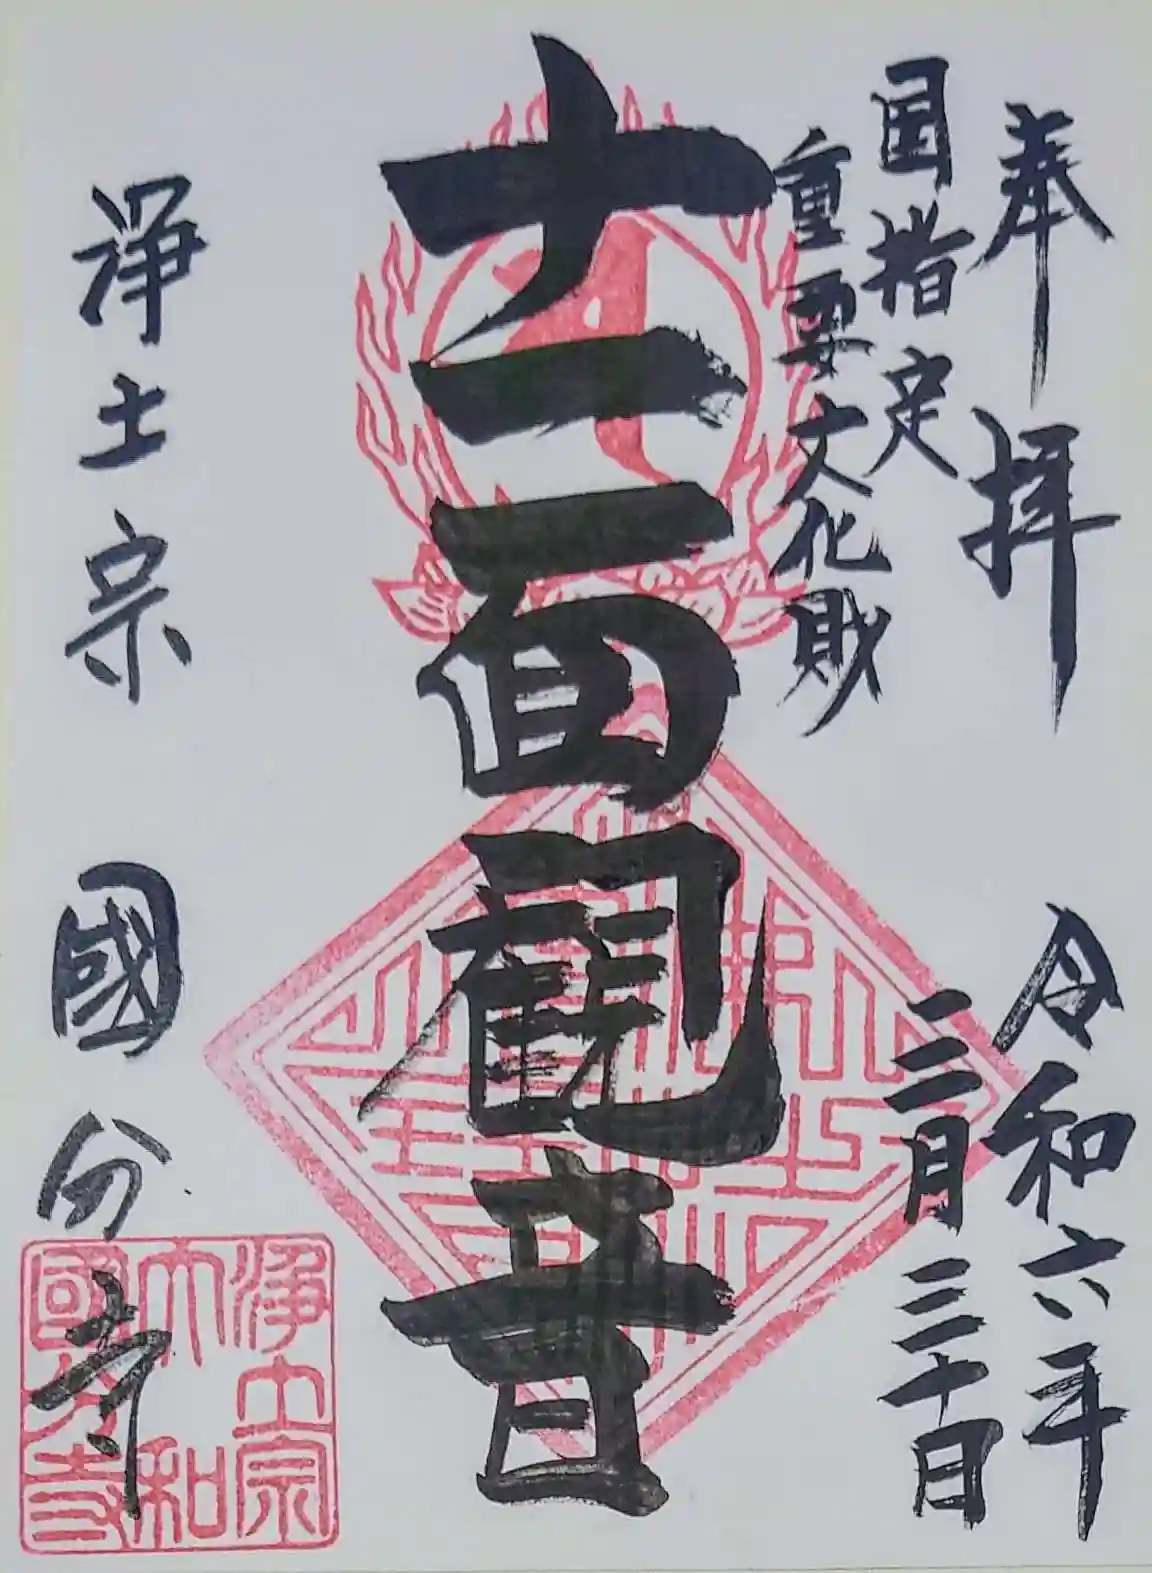 奉拝
国指定
重要文化財
十一面観音
令和六年
三月三十日
浄土宗 國分寺
浄土宗
大和
國分寺